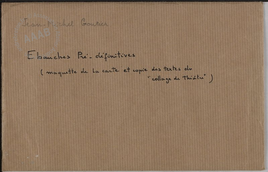 Jean-Michel
Ebauches Pré-définitives
(maquette de la carte et copie des textes du
"collage de Théâtre")